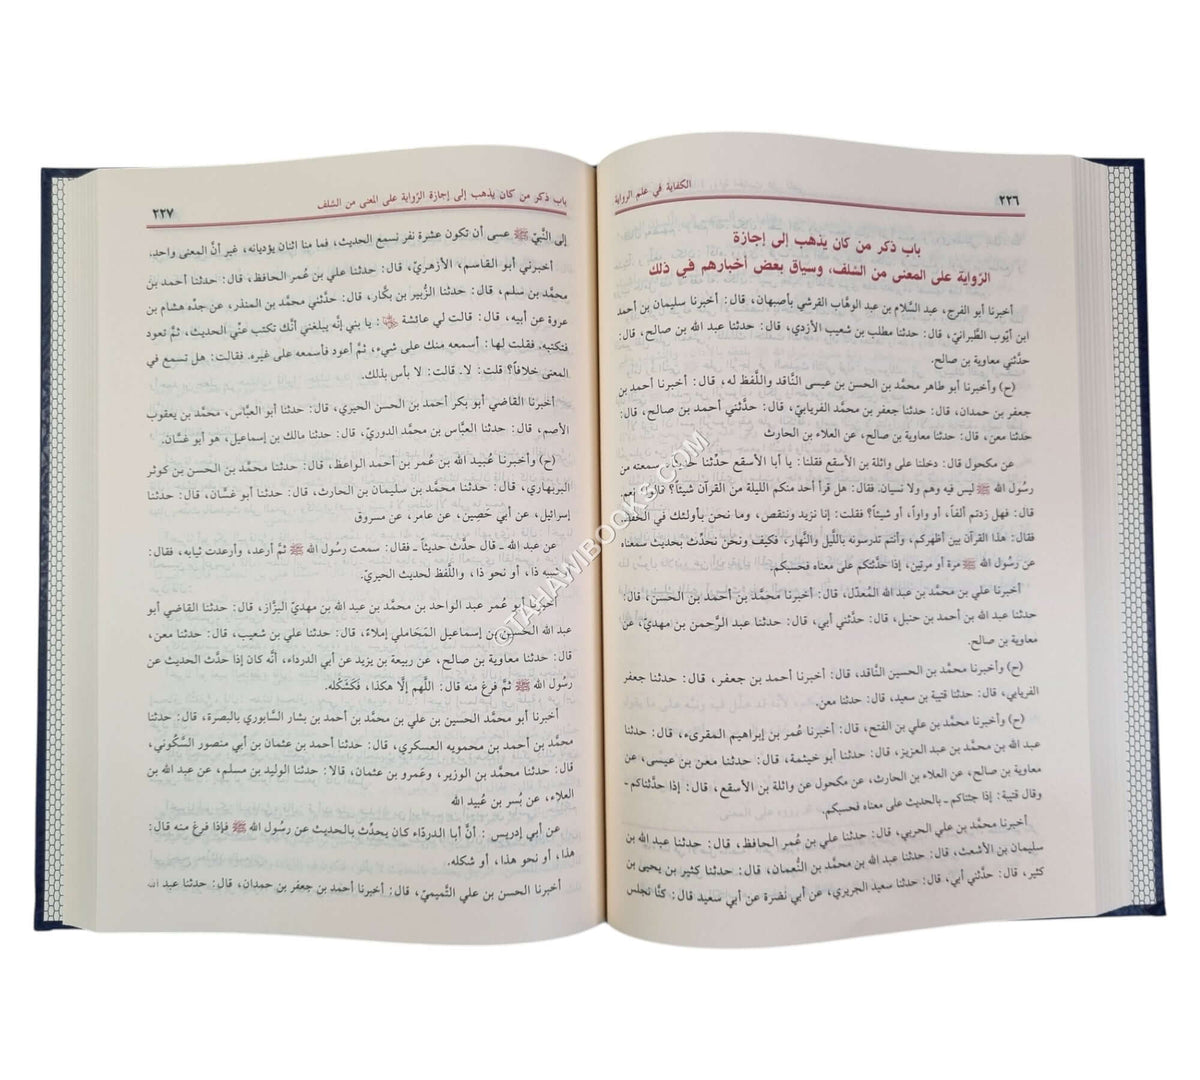 ٢٢٦
الكفاية في علم الرواية
باب ذكر من كان يذهب إلى إجازة
الرّواية على المعنى من السّلف، وسياق بعض أخبارهم في ذلك
أخبرنا أبو الفرج، عبد السَّلام بن عبد الوهَّاب القرشي بأصبهان، قال: أخبرنا سليمان بن أحمد
ابن أيّوب الطَّبرانيّ، قال: حدّثنا مطلب بن شعيب الأزدي، قال: حدثنا عبد الله بن صالح، قال:
حدَّثني معاوية بن صالح.
(ح) وأخبرنا أبو طاهر محمَّد بن الحسن بن عيسى النَّاقد واللَّفظ له، قال: أخبرنا أحمد بن
جعفر بن حمدان، قال: حدثنا جعفر بن محمَّد الفريابيّ، قال: حدَّثني أحمد بن صالح، قال:
حدثنا معن، قال: حدثنا معاوية بن صالح، عن العلاء بن الحارث
عن مكحول قال: دخلنا على واثلة بن الأسقع فقلنا: يا أبا الأسقع حدِّثنا حديثاً سمعته من
رسُول الله ﷺ ليس فيه وهم ولا نسيان. فقال: هل قرأ أحد منكم الليلة من القرآن شيئاً؟ قالوا: نعم.
قال: فهل زدتم ألفاً، أو واواً، أو شيئاً؟ فقلت: إنا نزيد وننقص، وما نحن بأولئك في الحفظ.
فقال: هذا القرآن بين أظهركم، وأنتم تدرسونه باللَّيل والنَّهار، فكيف ونحن نحدِّث بحديث سمعناه
عن رسُول الله ﷺ مرة أو مرتين، إذا حدَّثتكم على معناه فحسبكم.
أخبرنا علي بن محمَّد بن عبد الله المُعدّل، قال: أخبرنا محمَّد بن أحمد بن الحسن، قال:
حدثنا عبد الله بن أحمد بن حنبل، قال: حدَّثني أبي، قال: حدثنا عبد الرَّحمن بن مهديّ، عن
معاوية بن صالح.
(ح) وأخبرنا محمَّد بن الحسين النَّاقد، قال: أخبرنا أحمد بن جعفر، قال: حدثنا جعفر
الفريابي، قال: حدثنا قتيبة بن سعيد، قال: حدثنا معن.
(ح) وأخبرنا محمَّد بن علي بن الفتح، قال: أخبرنا عُمر بن إبراهيم المقرىء، قال: حدثنا
عبد الله بن محمَّد بن عبد العزيز، قال: حدثنا أبو خيثمة، قال: حدثنا معن بن عيسى، عن
معاوية بن صالح، عن العلاء بن الحارث، عن مكحول عن واثلة بن الأسقع، قال: إذا حدَّثناكم ـ
وقال قتيبة: إذا جئناكم ـ بالحديث على معناه فحسبكم.
أخبرنا محمَّد بن علي الحربي، قال: حدثنا علي بن عُمر الحافظ، قال: حدثنا عبد الله بن
سليمان بن الأشعث، قال: حدثنا عبد الله بن محمَّد بن النُّعمان، قال: حدثنا كثير بن يحيى بن
كثير، قال: حدَّثني أبي، قال: حدثنا سعيد الجريري، عن أبي نضرة عن أبي سعيد قال: كنّا نجلس
باب ذكر من كان يذهب إلى إجازة الرّواية على المعنى من السّلف
٢٢٧
إلى النَّبيّ ﷺ عسى أن تكون عشرة نفر نسمع الحديث، فما منا اثنان يؤديانه، غير أنَّ المعنى واحد.
أخبرني أبو القاسم، الأزهريّ، قال: حدثنا علي بن عُمر الحافظ، قال: حدثنا أحمد بن
محمَّد بن سلم، قال: حدثنا الزُّبير بن بكَّار، قال: حدَّثني محمَّد بن المنذر، عن جدّه هشام بن
عروة عن أبيه، قال: قالت لي عائشة: يا بني إنَّه يبلغني أنَّك تكتب عنِّي الحديث، ثمَّ تعود
فتكتبه. فقلت لها: أسمعه منك على شيء، ثمَّ أعود فأسمعه على غيره. فقالت: هل تسمع في
المعنى خلافاً؟ قلت: لا. قالت: لا بأس بذلك.
أخبرنا القاضي أبو بكر أحمد بن الحسن الحيري، قال: حدثنا أبو العبَّاس، محمَّد بن يعقوب
الأصم، قال: حدثنا العبَّاس بن محمَّد الدوريّ، قال: حدثنا مالك بن إسماعيل، هو أبو غسَّان.
(ح) وأخبرنا عُبيد الله بن عُمر بن أحمد الواعظ، قال: حدثنا محمَّد بن الحسن بن كوثر
البربهاري، قال: حدثنا محمَّد بن سليمان بن الحارث، قال: حدثنا أبو غسَّان، قال: حدثنا
إسرائيل، عن أبي حَصِين، عن عامر، عن مسروق
عن عبد الله ـ قال حدَّث حديثاً ـ فقال: سمعت رسُول الله ﷺ ثمَّ أرعد، وأرعدت ثيابه، فقال:
شبيه ذا، أو نحو ذا، واللَّفظ لحديث الحيريّ.
أخبرنا أبو عُمر عبد الواحد بن محمَّد بن عبد الله بن مهديّ البزَّاز، قال: حدثنا القاضي أبو
عبد الله الحسين بن إسماعيل المَحَاملي إملاءً، قال: حدثنا علي بن شعيب، قال: حدثنا معن،
قال: حدثنا معاوية بن صالح، عن ربيعة بن يزيد عن أبي الدرداء، أنَّه كان إذا حدَّث الحديث عن
رسُول الله ﷺ ثمَّ فرغ منه قال: اللَّهم إلَّا هكذا، فَكَشَكْله.
أخبرنا أبو محمَّد الحسين بن علي بن محمَّد بن أحمد بن بشار السَّابوري بالبصرة، قال: حدثنا
محمَّد بن أحمد بن محمويه العسكري، قال: حدثنا أحمد بن عثمان بن أبي منصور السَّكُوني،
قال: حدثنا محمَّد بن الوزير، وعَمرو بن عثمان، قالا: حدثنا الوليد بن مسلم، عن عبد الله بن
العلاء، عن بُسر بن عُبيد الله
عن أبي إدريس: أنَّ أبا الدردّاء كان يحدِّث بالحديث عن رسُول الله ﷺ فإذا فرغ منه قال:
هذا، أو نحو هذا، أو شكله.
أخبرنا الحسن بن علي التَّميميّ، قال: أخبرنا أحمد بن جعفر بن حمدان، قال: حدثنا عبد الله
©TAHAWIBOOKS.COM